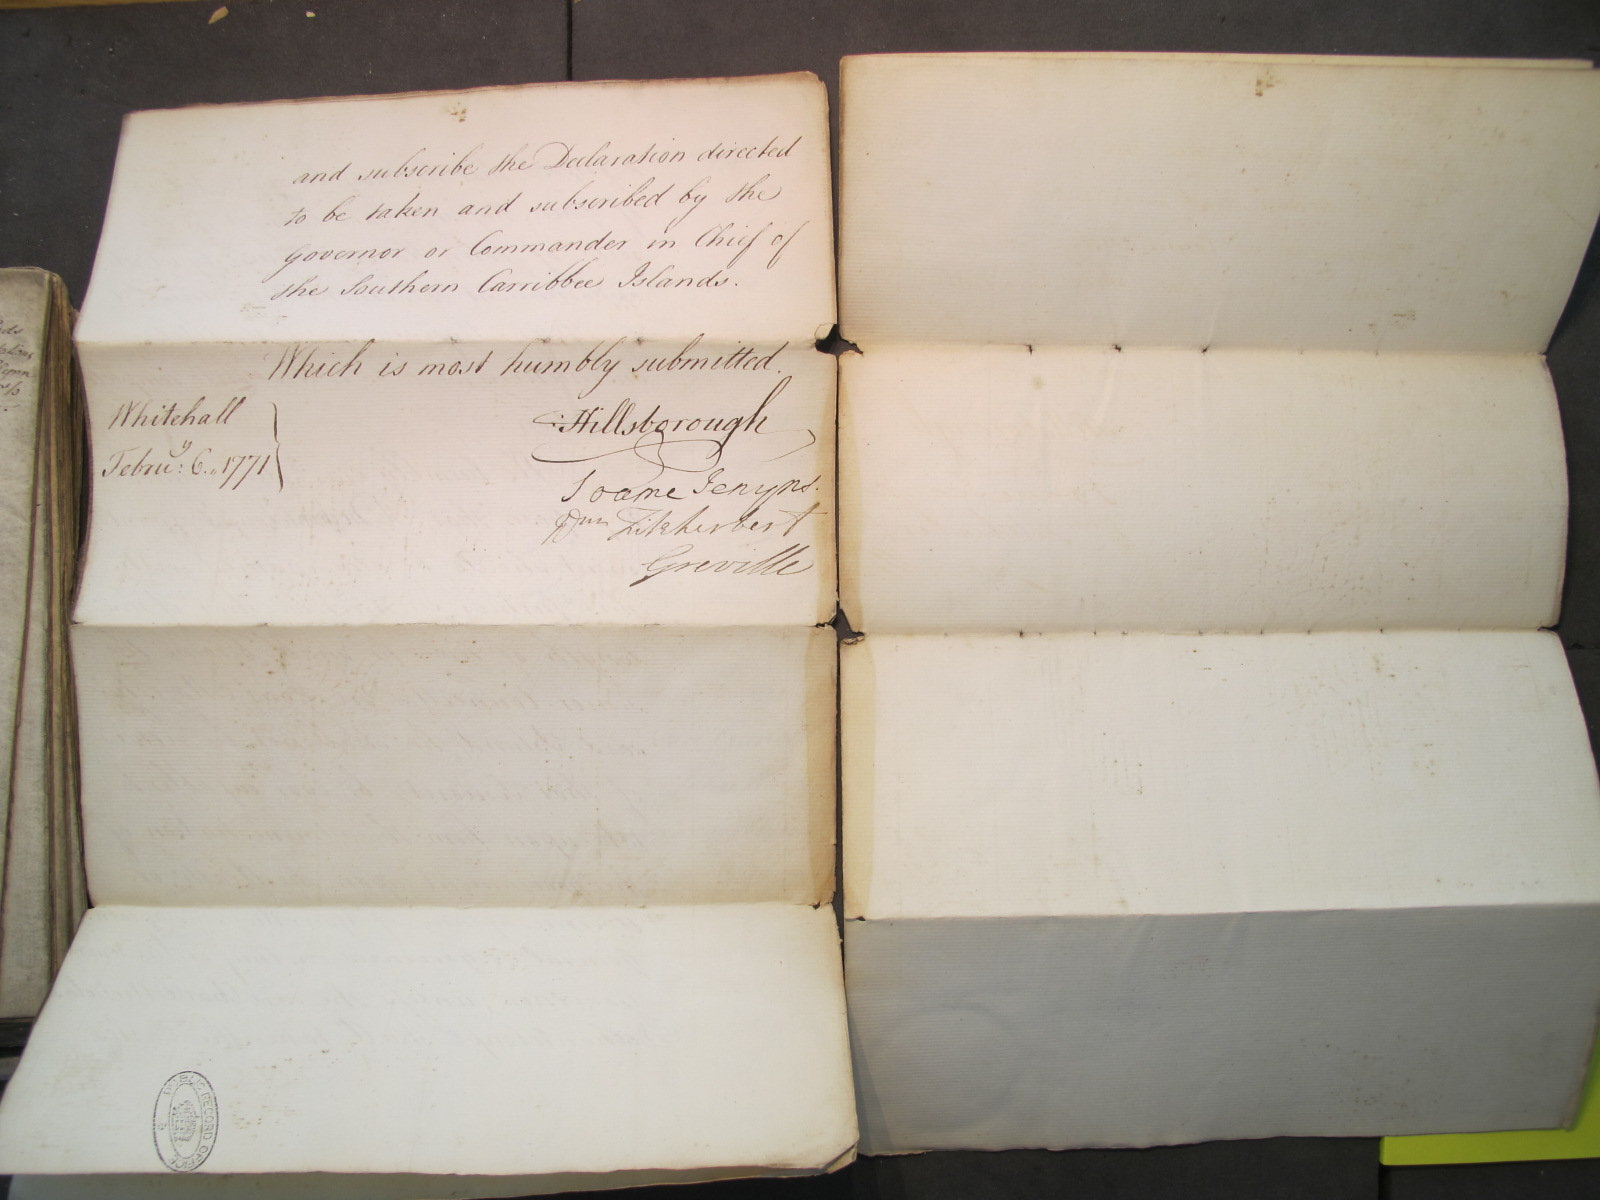 and subscribe the Declaration directed
to be taken and subscribed by the
Governor or Commander in Chief of
the Southern Carribbee Islands.
Which is most humbly submitted.
Whitehall
Febru:y 6., 1771
Hillsborough
Soame Jenyns.
Wm Fitzherbert
Greville
PUBLIC RECORD OFFICE